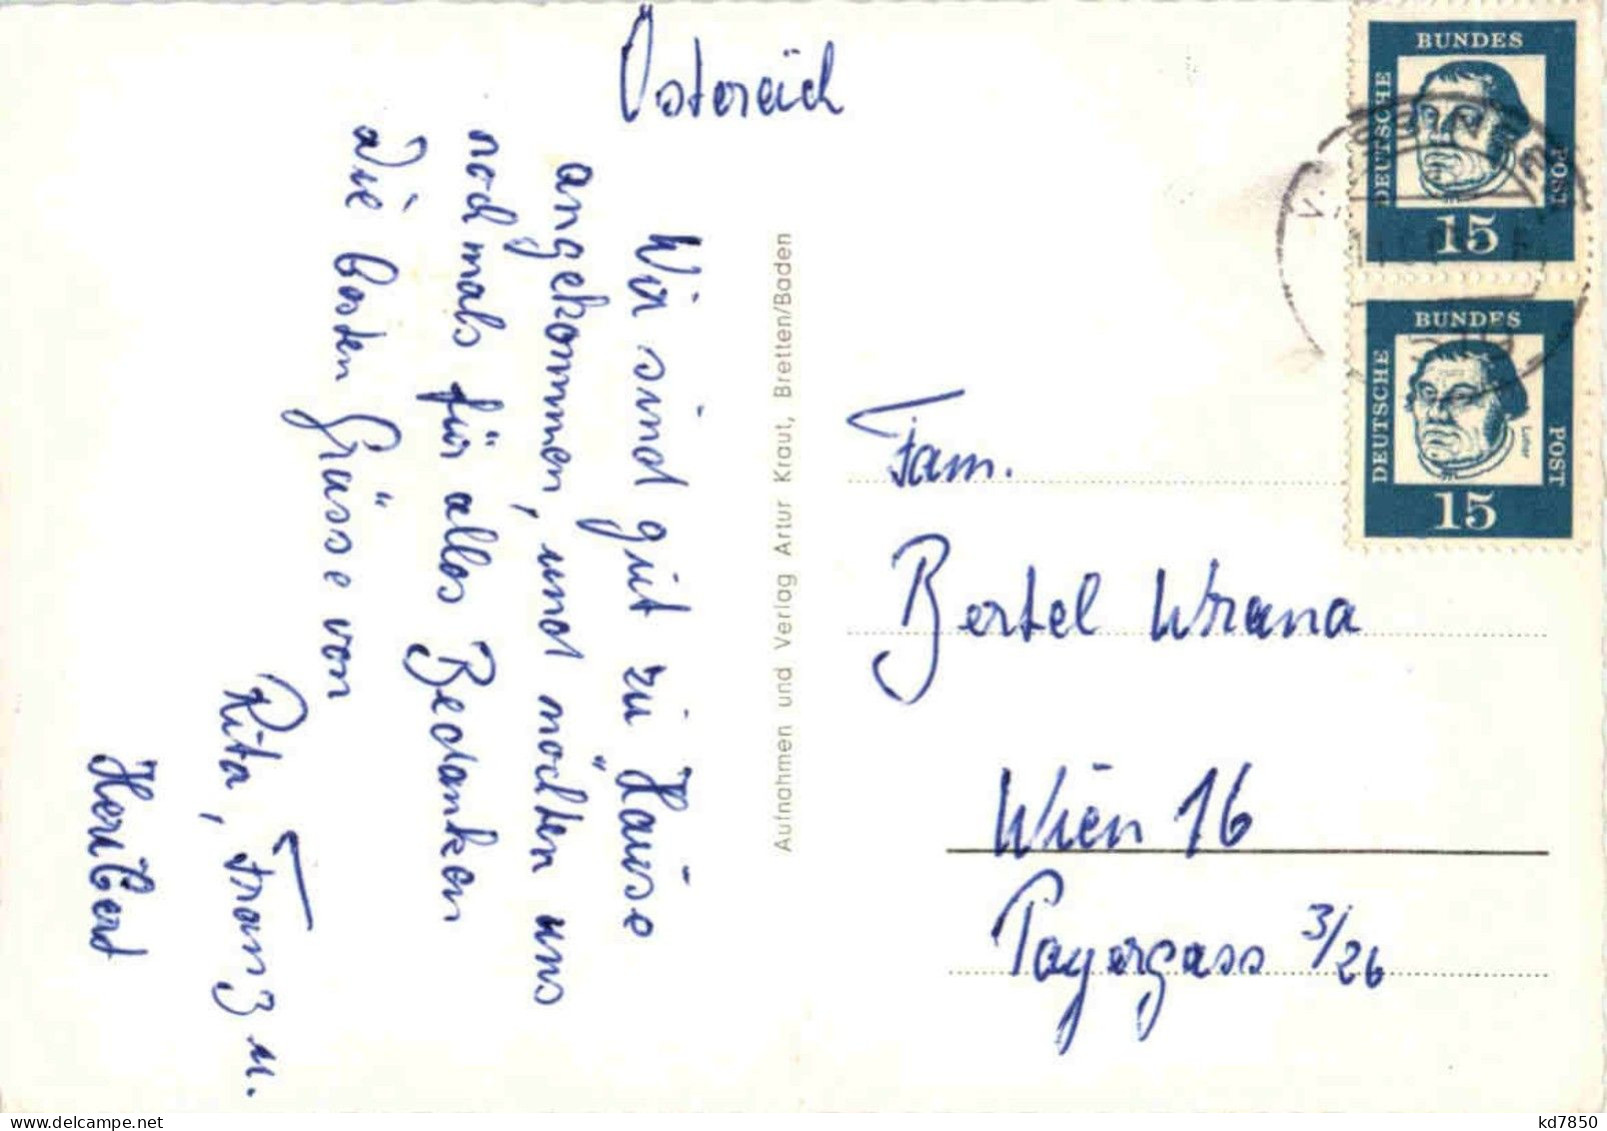 Östereich
Wir sind gut zu Hause
angekommen, und möchten uns
nochmals für alles Bedanken
die besten Grüsse von
Rita, Franz u.
Heribert
Aufnahmen und Verlag Artur Kraut, Bretten/Baden
Fam.
Bertel Wrana
Wien 16
Payergass 3/26
DEUTSCHE BUNDES POST
15
DEUTSCHE BUNDES POST
Luther
15
kd7850